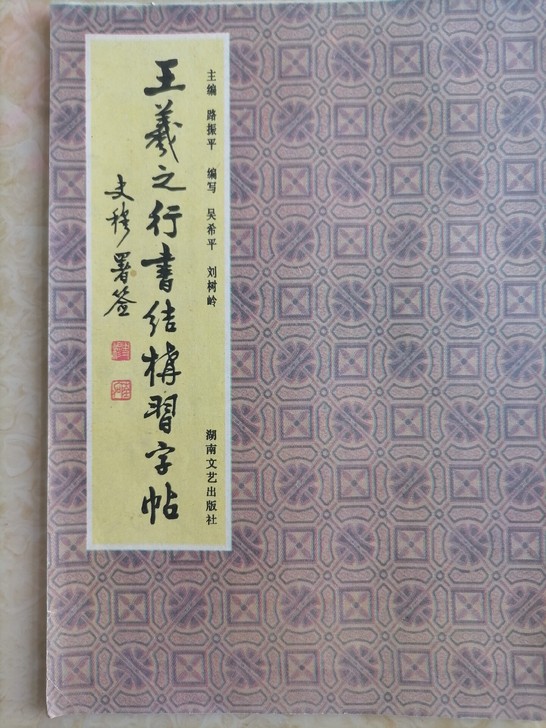 主编 路振平 编写 吴希平 刘树岭
湖南文艺出版社
王羲之行书结构習字帖
史穆署签